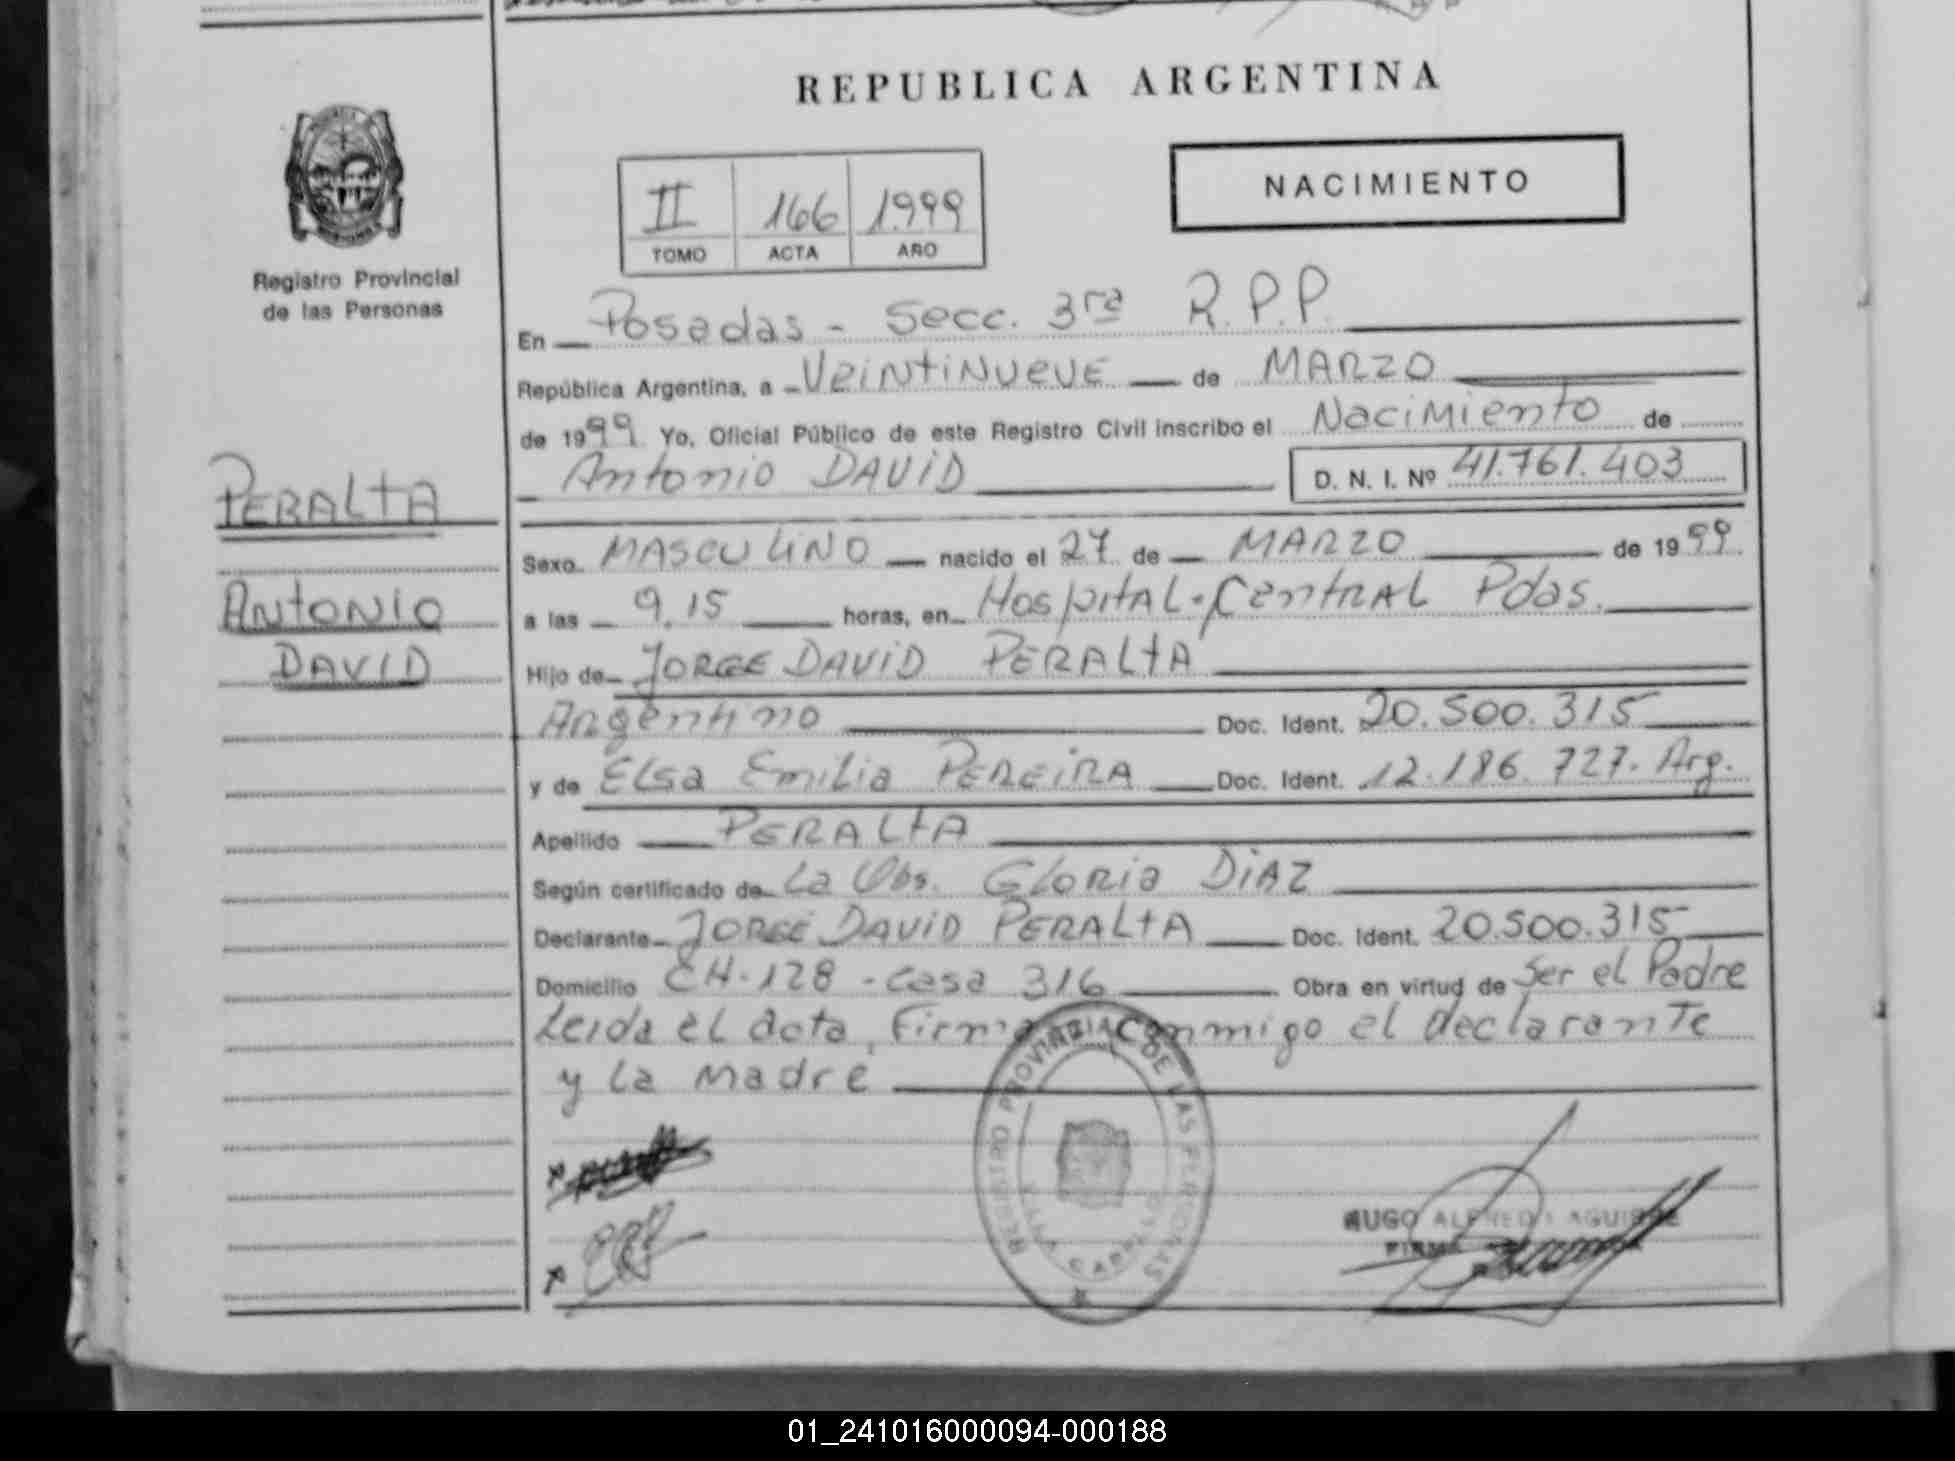 REPUBLICA ARGENTINA
NACIMIENTO
II 166 1.999
TOMO ACTA AÑO
Registro Provincial
de las Personas
En Posadas - Secc. 3ra R.P.P.
República Argentina, a Veintinueve de MARZO
de 1999 Yo, Oficial Público de este Registro Civil inscribo el Nacimiento de
Antonio DAVID D. N. I. Nº 41.761.403
PERALTA
ANTONIO
DAVID
Sexo MASCULINO nacido el 27 de MARZO de 1999
a las 9.15 horas, en Hospital Central Pdas.
Hijo de JORGE DAVID PERALTA
Argentino Doc. Ident. 20.500.315
y de Elsa Emilia PEREIRA Doc. Ident. 12.186.727. Arg.
Apellido PERALTA
Según certificado de La Obs. Gloria DIAZ
Declarante JORGE DAVID PERALTA Doc. Ident. 20.500.315
Domicilio CH. 128 - casa 316 Obra en virtud de Ser el Padre
Leida el acta, Firma conmigo el declarante
y la madre
REGISTRO PROVINCIAL DE LAS PERSONAS
HUGO ALFREDO AGUIRRE
01_241016000094-000188